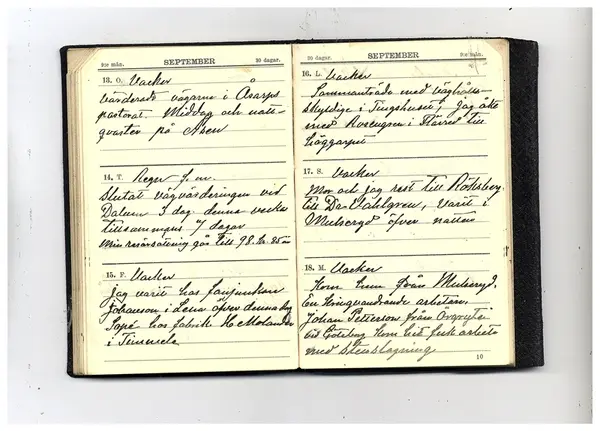 9:e mån. SEPTEMBER 30 dagar.
13. O. Vacker
värderade vägarne i Åsarps
pastorat. Middag och natt-
qvarter på Åsen
14. T. Regn f. m.
Slutat vägvärderingen vid
Dalum 3 dag. denna vecka
tillsammans 7 dagar
Min reseräsättning går till 98. kr. 25 öre
15. F. Vacker
Jag varit hos fanjunkare
Johanson i Lena öfver denna dag
Sopé hos fabrik. H. Molander
i Timmele
30 dagar. SEPTEMBER 9:e mån.
16. L. Vacker
Sammanträde med väghålls-
skyldige i Tingshuset, Jag åkte
med Rosengren i Härred till
höggarpet
17. S. Vacker
Mor och Jag rest till
till Da Vahlgren, varit i
Mulseryd öfver natten
18. M. Vacker
Kom hem från Mulseryd.
En kringvandrande arbetare.
Johan Petterson från Örgryte
vid Göteborg kom hit fick arbete
med Stenslagning
10